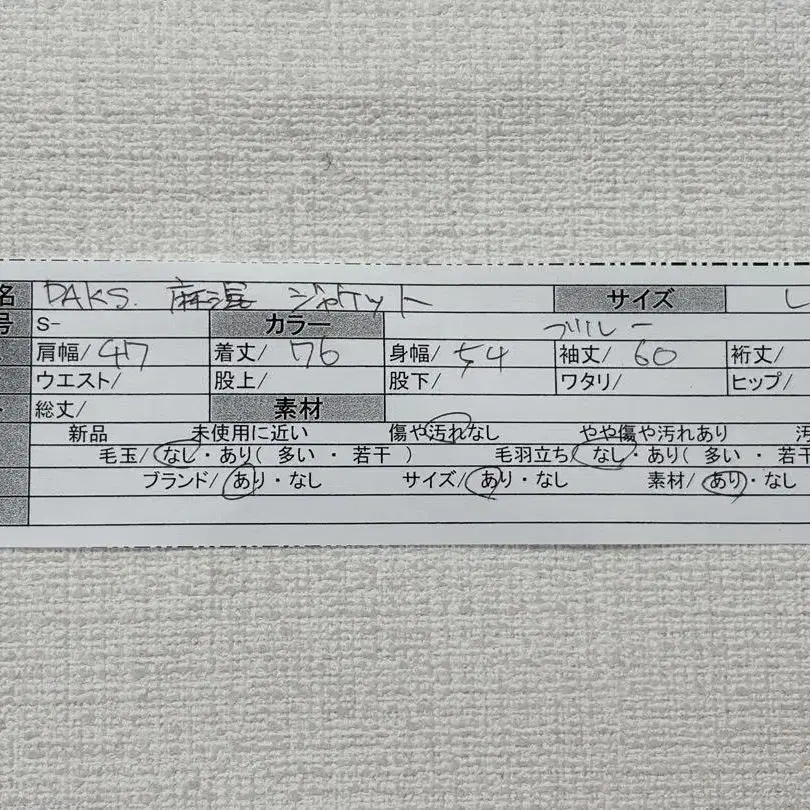 名 DAKS. 麻混 ジャケット サイズ L
号 S- カラー ブルー
肩幅/ 47 着丈/ 76 身幅/ 54 袖丈/ 60 裄丈/
ウエスト/ 股上/ 股下/ ワタリ/ ヒップ/
総丈/ 素材
新品 未使用に近い 傷や汚れなし やや傷や汚れあり 汚
毛玉/ なし・あり( 多い ・ 若干 ) 毛羽立ち/ なし・あり( 多い ・ 若干
ブランド/ あり・なし サイズ/ あり・なし 素材/ あり・なし